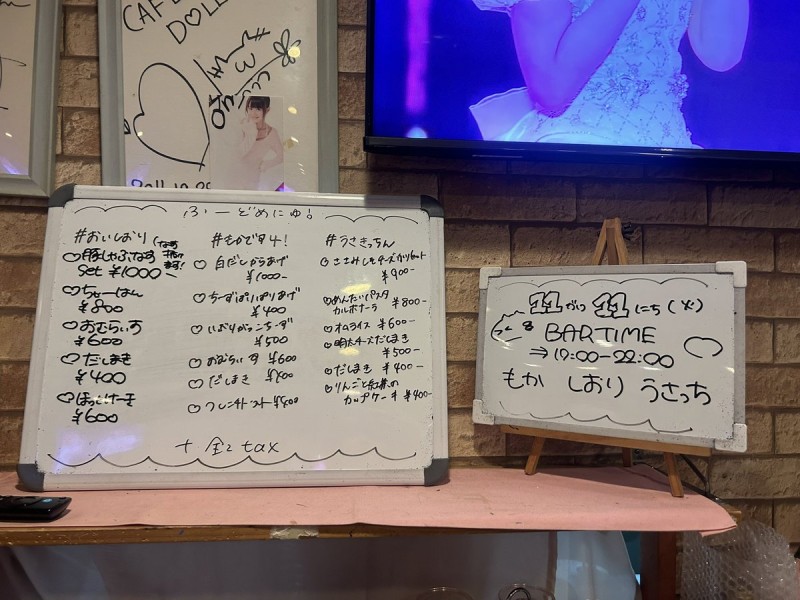 CAFE
DOLL
2011.10.28
ふーどめにゅ!
#おいしおり
♡豚しゃぶなす
set ¥1000-
♡ちゃーはん
¥800
♡おむらいす
¥600
♡だしまき
¥400
♡ほっとけーき
¥600
#もかですよ!
♡白だしからあげ
¥1000-
♡ちーずぱりぱりあげ
¥400
♡いぶりがっこちーず
¥500
♡おむらいす ¥600
♡だしまき ¥400
♡フレンチトースト ¥400
#うさきっちん
♡ささみしそチーズカリセット
¥900-
♡めんたいパスタ
カルボナーラ ¥800-
♡オムライス ¥600-
♡明太チーズだしまき
¥500-
♡だしまき ¥400-
♡りんごと紅茶の
カップケーキ ¥400-
+ 全て tax
11がつ11にち(火)
BARTIME
⇒17:00-22:00
もか しおり うさっち